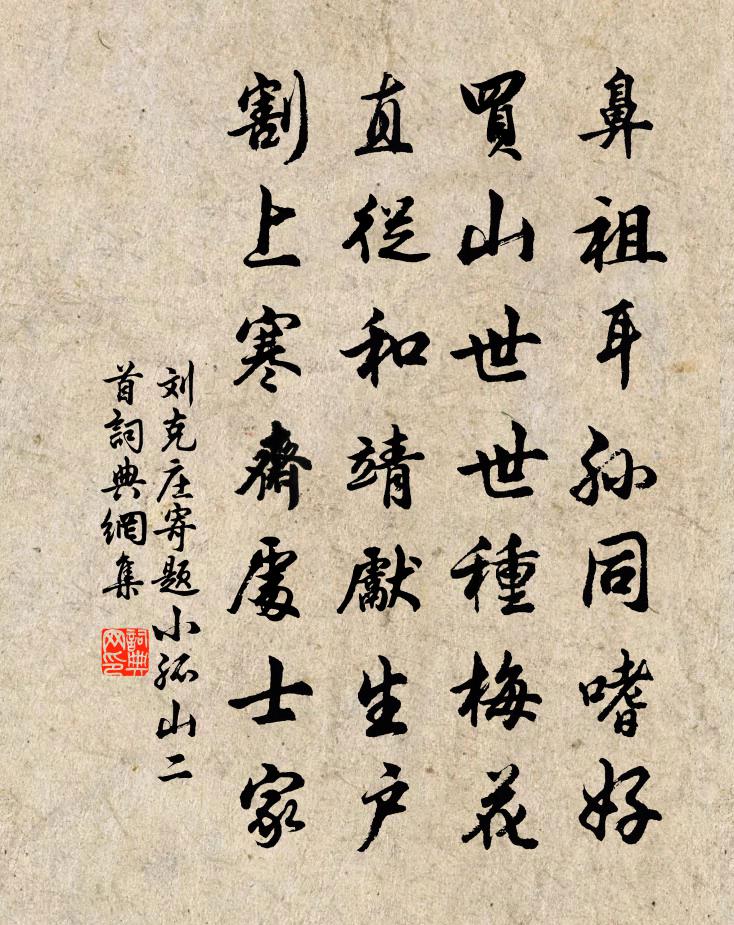 鼻祖耳孫同嗜好
買山世世種梅花
直從和靖獻生户
割上寒齋處士家
刘克庄寄题小孤山二
首詞典網集
詞典网印